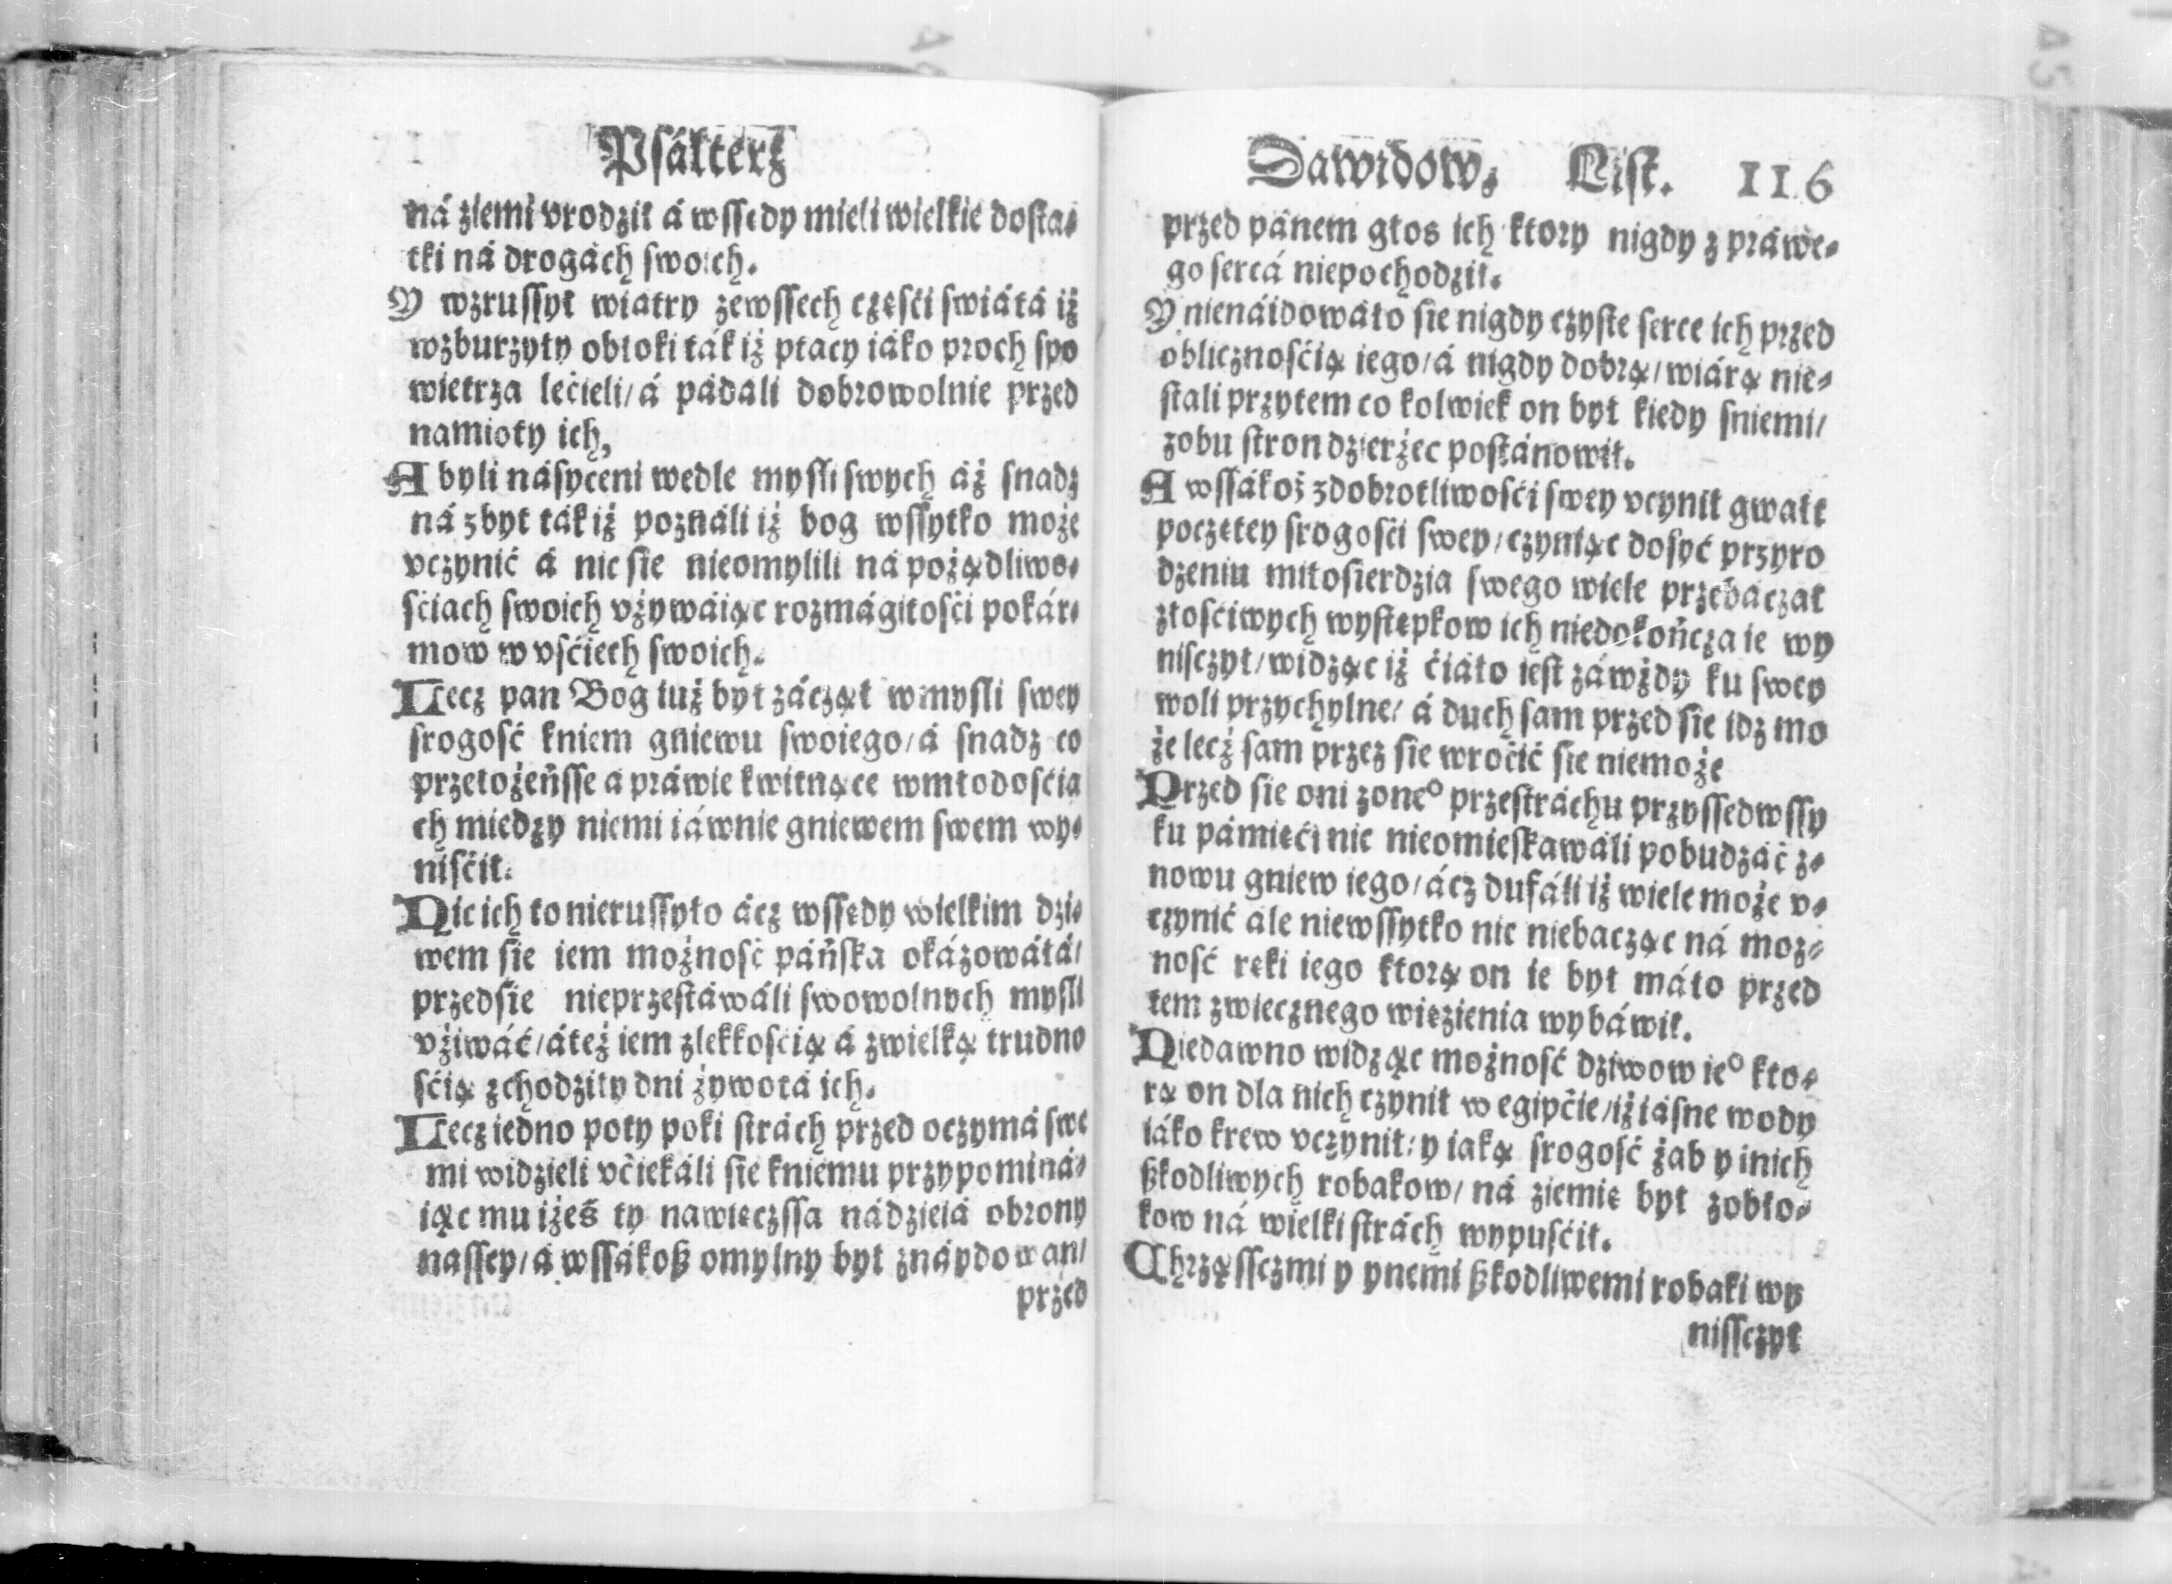 Psálterz
ná ziemi vrodził á wssędy mieli wielkie dosta⸗
tki ná drogách swoich.
Y wzrussył wiatry zewssech częsći swiátá iż
wzburzyły obłoki ták iż ptacy iáko proch spo
wietrza lećieli/ á pádali dobrowolnie przed
namioty ich,
A byli násyceni wedle mysli swych áż snadz
ná zbyt ták iż poználi iż bog wssytko może
vczynić á nic sie nieomylili ná pożądliwo⸗
sćiach swoich vżywáiąc rozmágitosći pokár⸗
mow w vsćiech swoich.
Lecz pan Bog iuż był záczął wmysli swey
srogosć kniem gniewu swoiego/ á snadz co
przełożeńsse a práwie kwitnące wmłodosćia
ch miedzy niemi iáwnie gniewem swem wy⸗
nisćił.
Nic ich to nierussyło ácz wssędy wielkim dzi⸗
wem sie iem możnosć páńska okázowáłá/
przedsie nieprzestáwáli swowolnych mysli
vżiwáć/ áteż iem zlekkoscią á zwielką trudno
sćią zchodziły dni żywotá ich.
Lecz iedno poty poki strách przed oczymá swe
mi widzieli vćiekáli sie kniemu przypominá⸗
iąc mu iżeś ty nawięczssa nádzieiá obrony
nassey/ á wssákoß omylny był znáydowan/
przed
Dawidow, List. 116
przed pánem głos ich ktory nigdy z práwe⸗
go sercá niepochodził.
Y nienáidowáło sie nigdy czyste serce ich przed
oblicznosćią iego/ á nigdy dobrą/ wiárą nie⸗
stali przytem co kolwiek on był kiedy sniemi/
zobu stron dzierżec postánowił.
A wssákoż zdobrotliwosći swey vcynił gwałt
poczętey srogosći swey/ czyniąc dosyć przyro
dzeniu miłosierdzia swego wiele przebaczał
złosćiwych wystepkow ich niedokończa ie wy
nisczył/ widząc iż ćiáło iest záwżdy ku swey
woli przychylne/ á duch sam przed sie idz mo
że lecż sam przez sie wroćić sie niemoże
Przed sie oni zoneº przestráchu przyssedwssy
ku pámięći nic nieomieskawáli pobudzáć z⸗
nowu gniew iego/ ácz dufáli iż wiele może v⸗
czynić ale niewssytko nic niebacząc ná moz⸗
nosć ręki iego ktorą on ie był máło przed
tem zwiecznego więzienia wybáwił.
Niedawno widząc możnosć dziwow ieº kto⸗
rą on dla nich czynił w egipćie/ iż iásne wody
iáko krew vczynił/ y iaką srogosć żab y inich
ßkodliwych robakow/ ná ziemię był zobło⸗
kow ná wielki strách wypusćił.
Chrząssczmi y ynemi ßkodliwemi robaki wy
nissczył